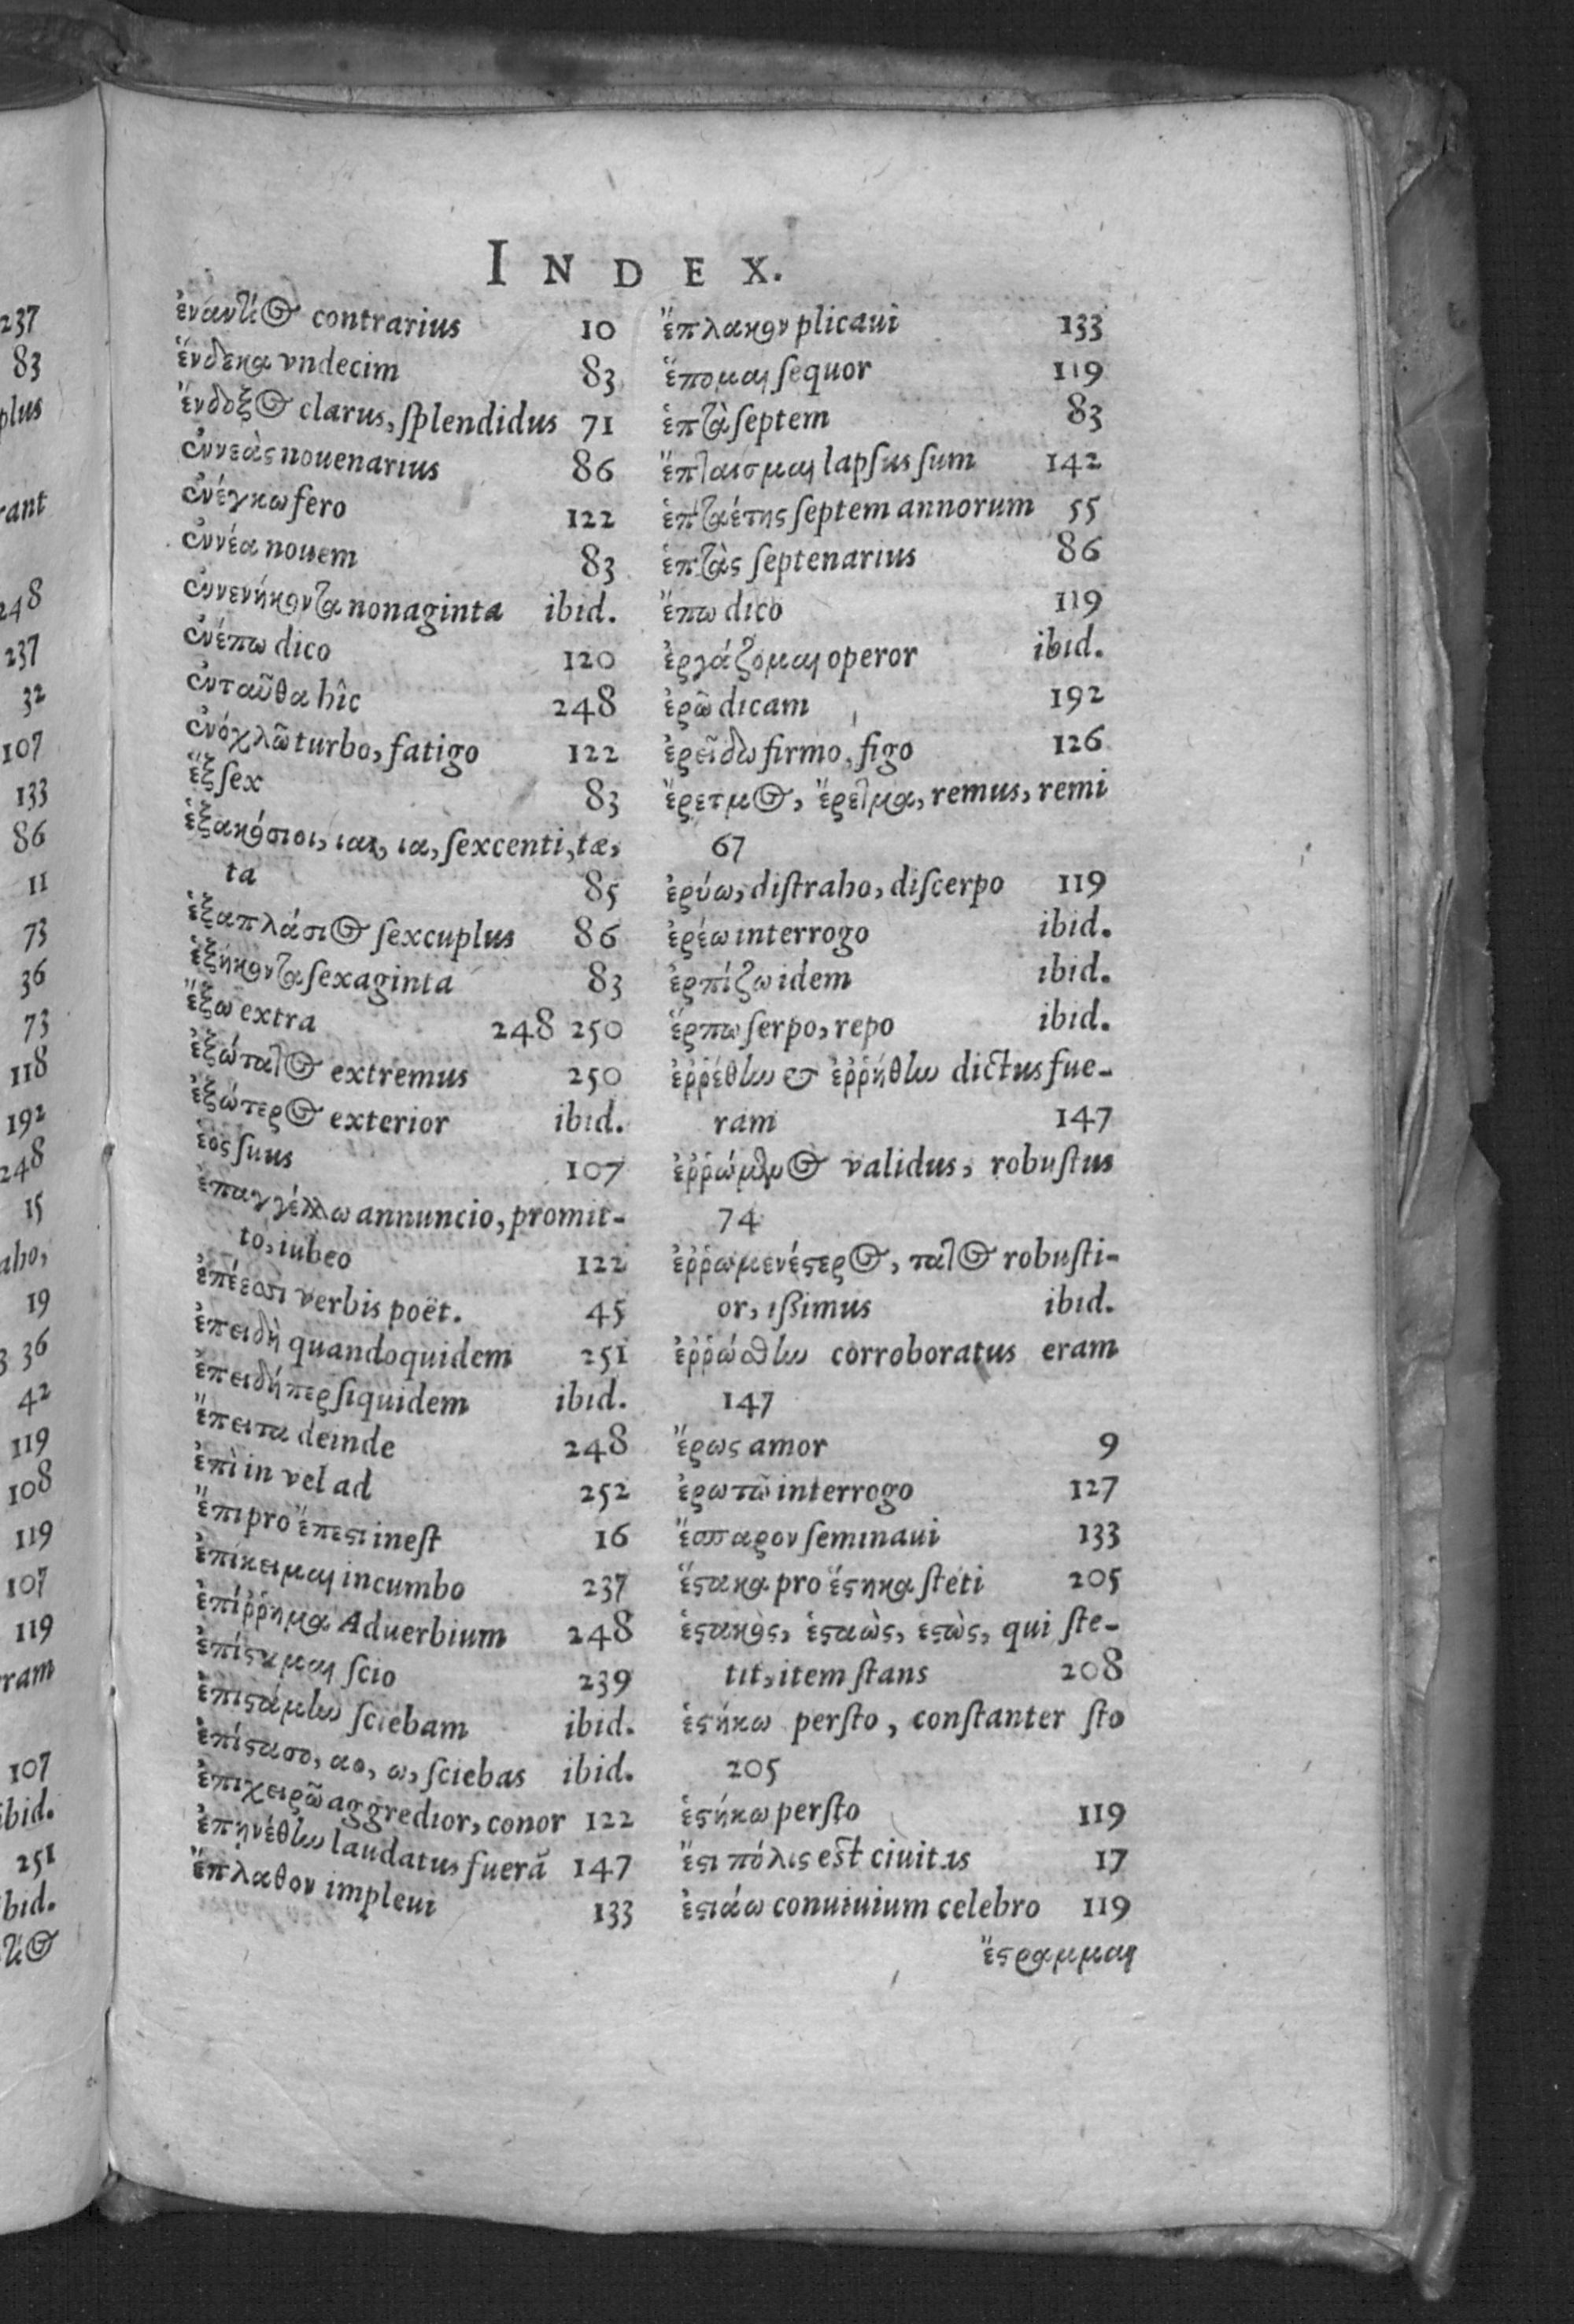 INDEX.
ἐναντίος contrarius 10
ἕνδεκα vndecim 83
ἔνδοξος clarus, ſplendidus 71
ἐννεὰς nouenarius 86
ἐνέγκω fero 122
ἐννέα nouem 83
ἐννενήκοντα nonaginta ibid.
ἐνέπω dico 120
ἐνταῦθα hîc 248
ἐνόχλῶ turbo, fatigo 122
ἕξ ſex 83
ἑξακόσιοι, ιαι, ια, ſexcenti, tæ,
ta 85
ἑξαπλάσιος ſexcuplus 86
ἑξήκοντα ſexaginta 83
ἔξω extra 248 250
ἐξώτατος extremus 250
ἐξώτερος exterior ibid.
ἑος ſuus 107
ἐπαγγέλλω annuncio, promit-
to, iubeo 122
ἐπέεσσι verbis poët. 45
ἐπειδὴ quandoquidem 251
ἐπειδήπερ ſiquidem ibid.
ἔπειτα deinde 248
ἐπὶ in vel ad 252
ἔπι pro ἔπεσι ineſt 16
ἐπίκειμαι incumbo 237
ἐπίῤῥημα Aduerbium 248
ἐπίςαμαι ſcio 239
ἐπιςάμην ſciebam ibid.
ἐπίςασο, αο, ω, ſciebas ibid.
ἐπιχειρῶ aggredior, conor 122
ἐπηνέθην laudatus fuerã 147
ἔπλαθον impleui 133
ἔπλακον plicaui 133
ἕπομαι ſequor 119
ἑπτὰ ſeptem 83
ἔπταισμαι lapſus ſum 142
ἑπταέτης ſeptem annorum 55
ἑπτὰς ſeptenarius 86
ἔπω dico 119
ἐργάζομαι operor ibid.
ἐρῶ dicam 192
ἐρεῖδω firmo, figo 126
ἔρετμος, ἔρετμα, remus, remi
67
ἐρύω, diſtraho, diſcerpo 119
ἐρέω interrogo ibid.
ἑρπίζω idem ibid.
ἕρπω ſerpo, repo ibid.
ἐῤῥέθην & ἐῤῥήθην dictus fue-
ram 147
ἐῤῥώμενος validus, robuſtus
74
ἐῤῥωμενέςερος, τατος robuſti-
or, ißimus ibid.
ἐῤῥώσθην corroboratus eram
147
ἔρως amor 9
ἐρωτῶ interrogo 127
ἔσπαρον ſeminaui 133
ἕςακα pro ἕςηκα ſteti 205
ἑςακὸς, ἑςαὼς, ἑςὼς, qui ſte-
tit, item ſtans 208
ἑςήκω perſto, conſtanter ſto
205
ἑςήκω perſto 119
ἔςι πόλις est ciuitas 17
ἑςιάω conuiuium celebro 119
ἔςραμμαι
237
83
plus
rant
248
237
32
107
133
86
11
73
36
73
118
192
248
15
aho,
19
3 36
42
119
108
119
107
119
ram
107
ibid.
251
ibid.